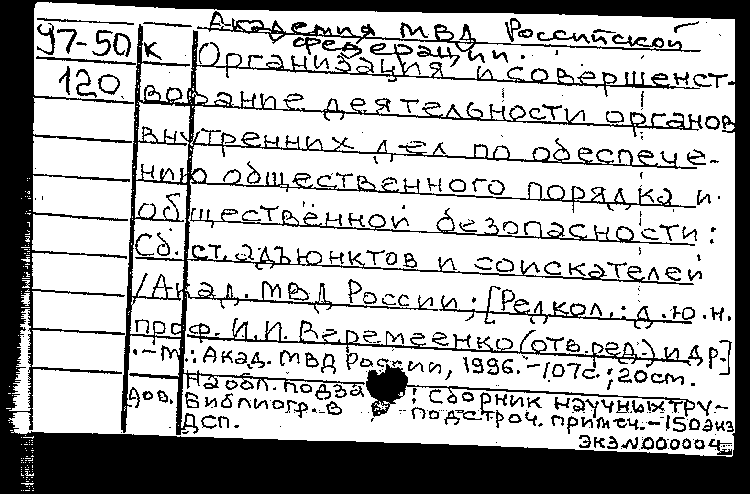 Академия МВД Российской
Федерации.
97-50 к Организация и совершенст-
120 вование деятельности органов
внутренних дел по обеспече-
нию общественного порядка и
общественной безопасности:
Сб. ст. адъюнктов и соискателей
/Акад. МВД России; [Редкол.: д.ю.н.
проф. И.И. Веремеенко (отв. ред.) и др.]
.-М.: Акад. МВД России, 1996.-107с.; 20см.
На обл. подза : Сборник научных тру-
дов. Библиогр. в подстроч. примеч.-150экз
ДСП.
Экз.N000004